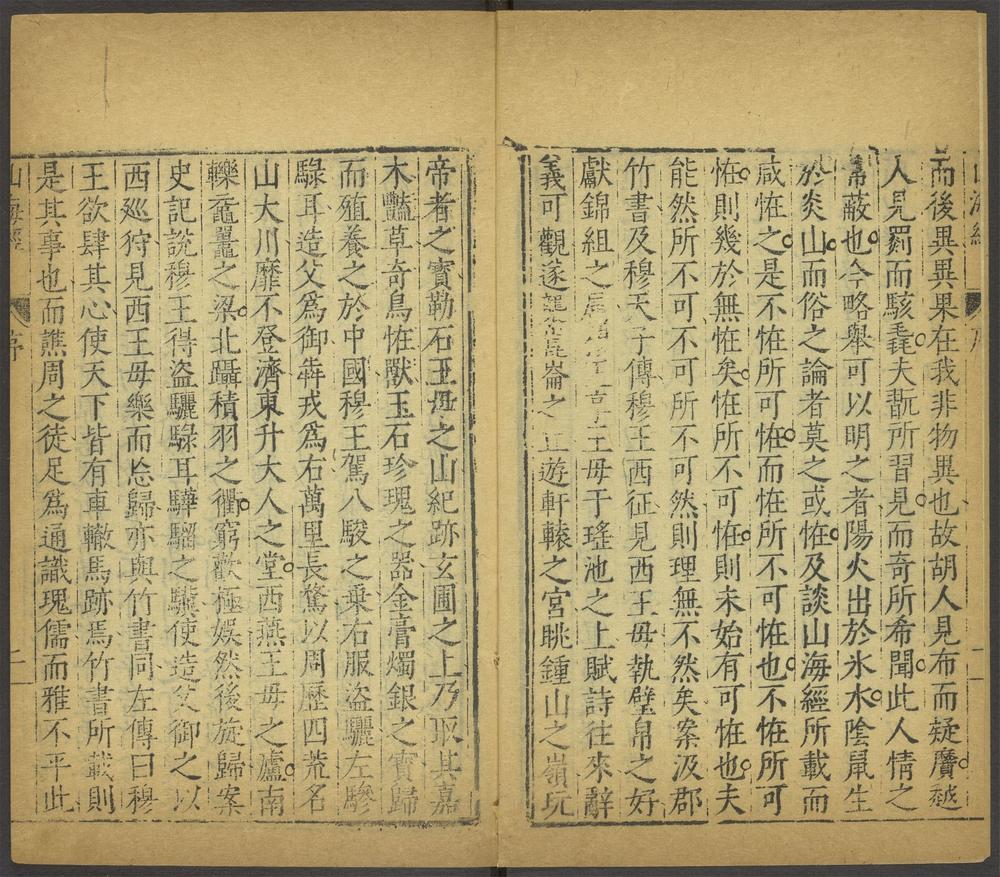 山海經
序
二
而後異異果在我非物異也故胡人見布而疑黂越
人見罽而駭毳夫翫所習見而奇所希聞此人情之
常蔽也今略舉可以明之者陽火出於氷水陰鼠生
於炎山而俗之論者莫之或恠及談山海經所載而
咸恠之是不恠所可恠而恠所不可恠也不恠所可
恠則幾於無恠矣恠所不可恠則未始有可恠也夫
能然所不可不可所不可然則理無不然矣案汲郡
竹書及穆天子傳穆王西征見西王母執璧帛之好
獻錦組之屬 王母于瑤池之上賦詩往來辭
義可觀遂襲崑崙之丘遊軒轅之宮眺鍾山之嶺玩
帝者之寶勒石王母之山紀跡玄圃之上乃取其嘉
木豔草奇鳥恠獸玉石珍瑰之器金膏燭銀之寶歸
而殖養之於中國穆王駕八駿之乗右服盗驪左驂
騄耳造父爲御犇戎爲右萬里長騖以周歷四荒名
山大川靡不登濟東升大人之堂西燕王母之廬南
轢黿鼉之梁北躡積羽之衢窮歡極娛然後旋歸案
史記說穆王得盗驪騄耳驊騮之驥使造父御之以
西廵狩見西王母樂而忘歸亦與竹書同左傳曰穆
王欲肆其心使天下皆有車轍馬跡焉竹書所載則
是其事也而譙周之徒足爲通識瑰儒而雅不平此
山海經
序
二